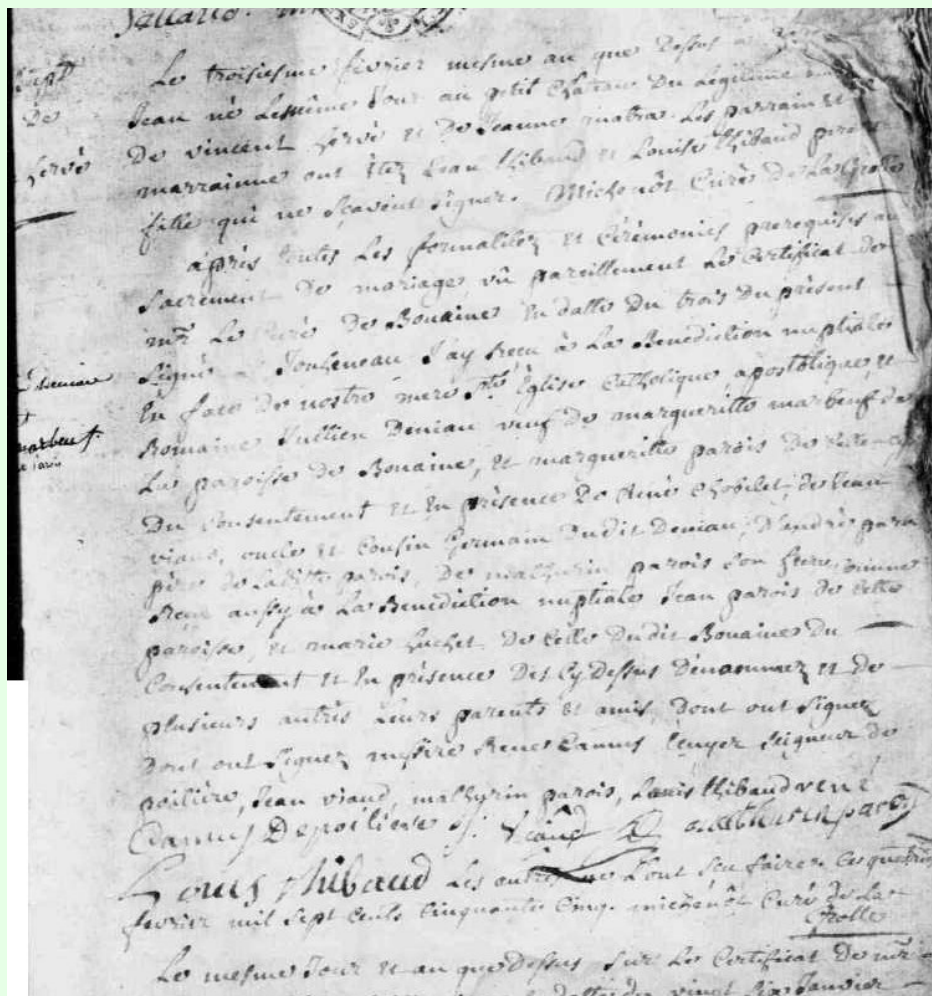 Le troisiesme fevrier mesme an que dessus a
Bapt
Jean né le même jour au petit chateau du legitime
De
De vincent hervé et De Jeanne matra. Les parrain et
hervé
marrainne ont êtez Jean thibaud et Louise thibaud
fille qui ne sçavent signer. Michenôt Curé de La Grolle
après toutes les formalitez et Cérémonies prerequises au
Sacrement De mariage vû pareillement Le Certificat de
mr Le Curé De Bouaine En datte Du trois Du présent
Signé J'ay Receu à La Benediction nuptiale
Deniau
En face De nostre mere Ste Église Catholique, apostolique, et
Romaine Jullien Deniau veuf de margueritte marbeuf de
marbeuf.
La paroisse de Bouaine, et margueritte parois De Cette
Du Consentement et En présence De Aimé Chobelet, de Jean
viaud, oncle et Cousin Germain Dudit Deniau, D'andré parois
père de Laditte parois, De mathurin parois son frere, comme
Receu aussy à La Benediction nuptiale Jean parois de Cette
paroisse, et marie huchet De Celle Dudit Bouaine Du
Consentement et En présence Des Cy Dessus Dénommez et de
plusieurs autres Leurs parents et amis, Dont ont Signez
Dont ont Signez messire Renes Camus Ecuyer Seigneur de
poiliere, Jean viaud, mathurin parois, Louis thibaud
Camus Depoiliere J. Viaud mathurin parois
Louis thibaud Les autres ne L'ont Sçu faire. Ce quatre
fevrier mil Sept Cents Cinquante Cinq. michenôt Curé de La
Grolle
Le mesme Jour et an que dessus Sur Le Certificat De mr
vingt Six Janvier